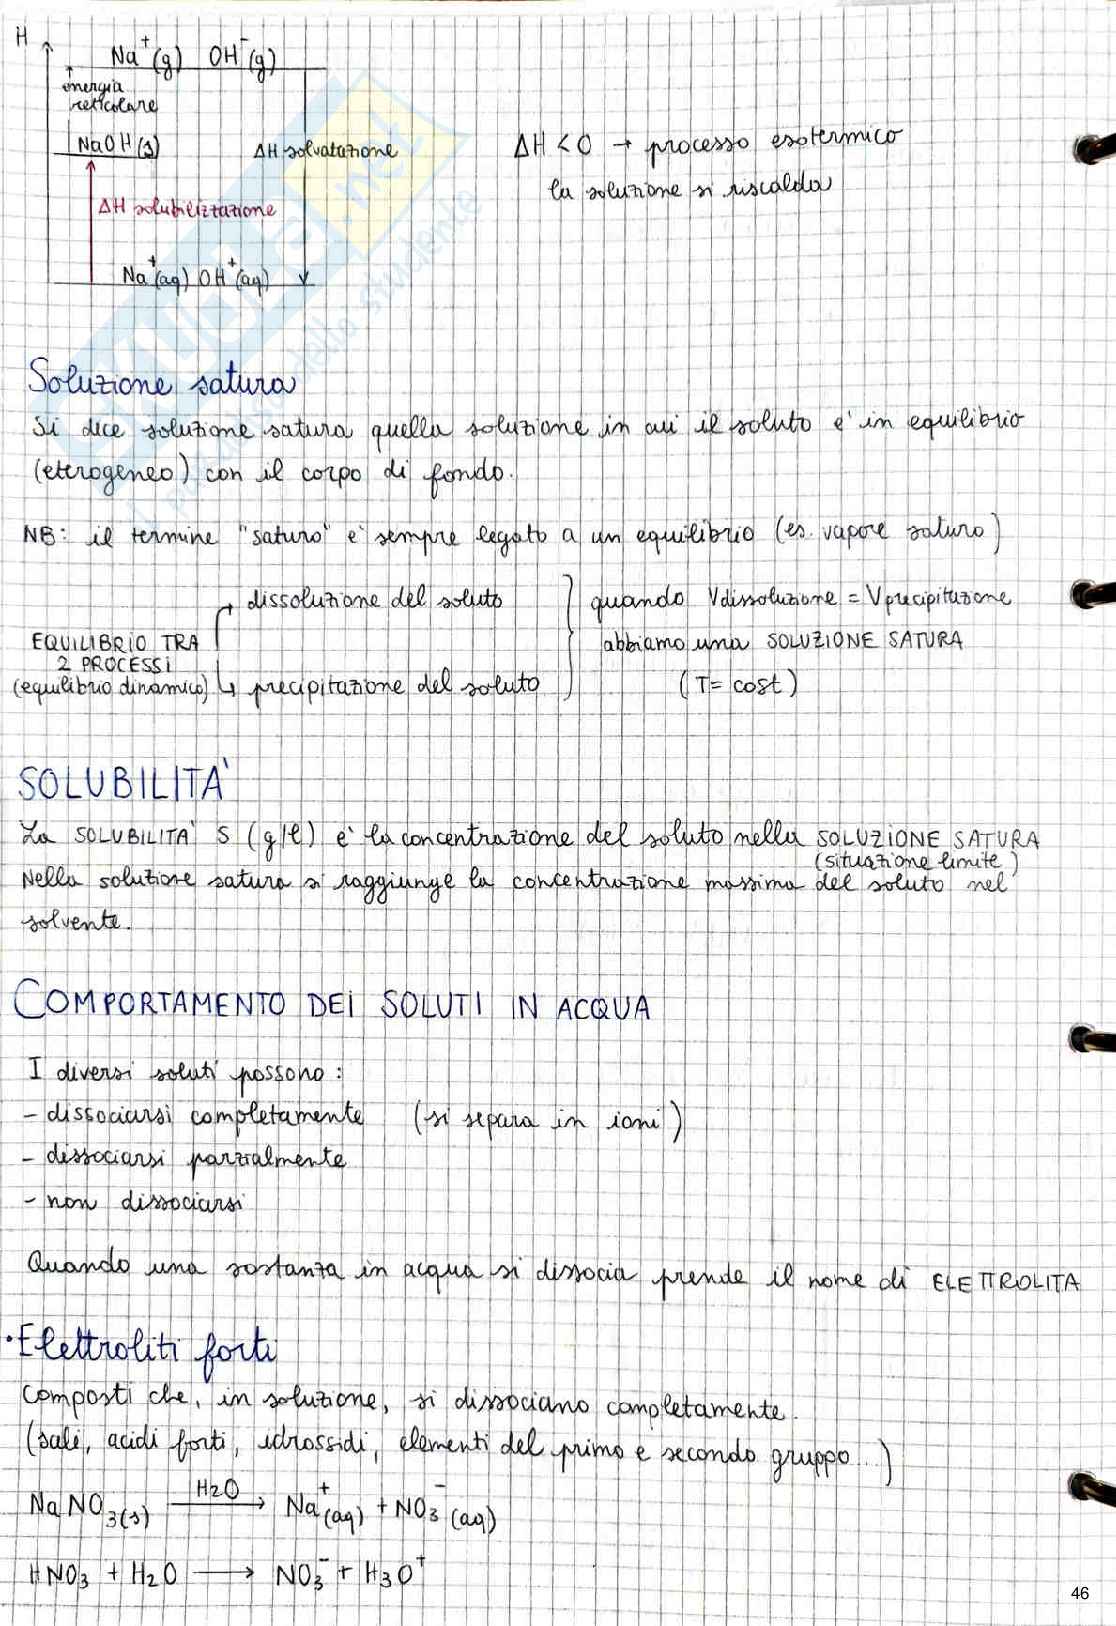 H
Na⁺(g) OH⁻(g)
energia
reticolare
NaOH(s)
ΔH solvatazione
ΔH solubilizzazione
Na⁺(aq) OH⁺(aq)
ΔH < 0 → processo esotermico
la soluzione si riscalda
Soluzione satura
Si dice soluzione satura quella soluzione in cui il soluto e' in equilibrio
(eterogeneo) con il corpo di fondo.
NB: il termine "saturo" e' sempre legato a un equilibrio (es. vapore saturo)
EQUILIBRIO TRA
2 PROCESSI
(equilibrio dinamico)
dissoluzione del soluto
precipitazione del soluto
quando Vdissoluzione = Vprecipitazione
abbiamo una SOLUZIONE SATURA
(T= cost)
SOLUBILITA'
La SOLUBILITA' S (g/l) e' la concentrazione del soluto nella SOLUZIONE SATURA
(situazione limite)
Nella soluzione satura si raggiunge la concentrazione massima del soluto nel
solvente.
COMPORTAMENTO DEI SOLUTI IN ACQUA
I diversi soluti possono:
- dissociarsi completamente (si separa in ioni)
- dissociarsi parzialmente
- non dissociarsi
Quando una sostanza in acqua si dissocia prende il nome di ELETTROLITA
• Elettroliti forti
Composti che, in soluzione, si dissociano completamente.
(sali, acidi forti, idrossidi, elementi del primo e secondo gruppo...)
NaNO₃(s) H₂O → Na⁺(aq) + NO₃⁻(aq)
HNO₃ + H₂O → NO₃⁻ + H₃O⁺
46